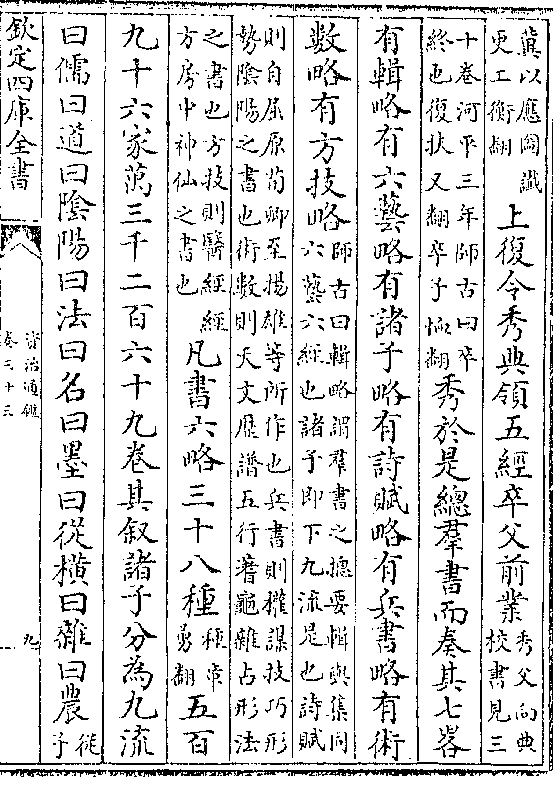 冀以應圖讖
更工衡翻
上復令秀典領五經卒父前業
秀父向典
校書見三
十卷河平三年師古曰卒
終也復扶又翻卒子恤翻
秀於是總羣書而奏其七畧
有輯略有六藝略有諸子略有詩賦略有兵書略有術
數略有方技略
師古曰輯略謂羣書之摠要輯與集同
六藝六經也諸子即下九流是也詩賦
則自屈原荀卿至揚雄等所作也兵書則權謀技巧形
勢陰陽之書也術數則天文厯譜五行蓍龜雜占形法
之書也方技則醫經經
方房中神仙之書也
凡書六略三十八種
種章
勇翻
五百
九十六家萬三千二百六十九卷其叙諸子分為九流
曰儒曰道曰陰陽曰法曰名曰墨曰從橫曰雜曰農
從
子
欽定四庫全書
資治通鑑
卷三十三
九